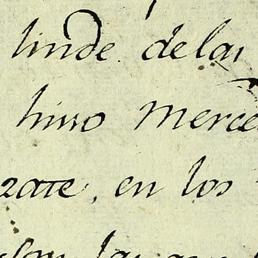 linde de las
hizo Merce
zate, en los